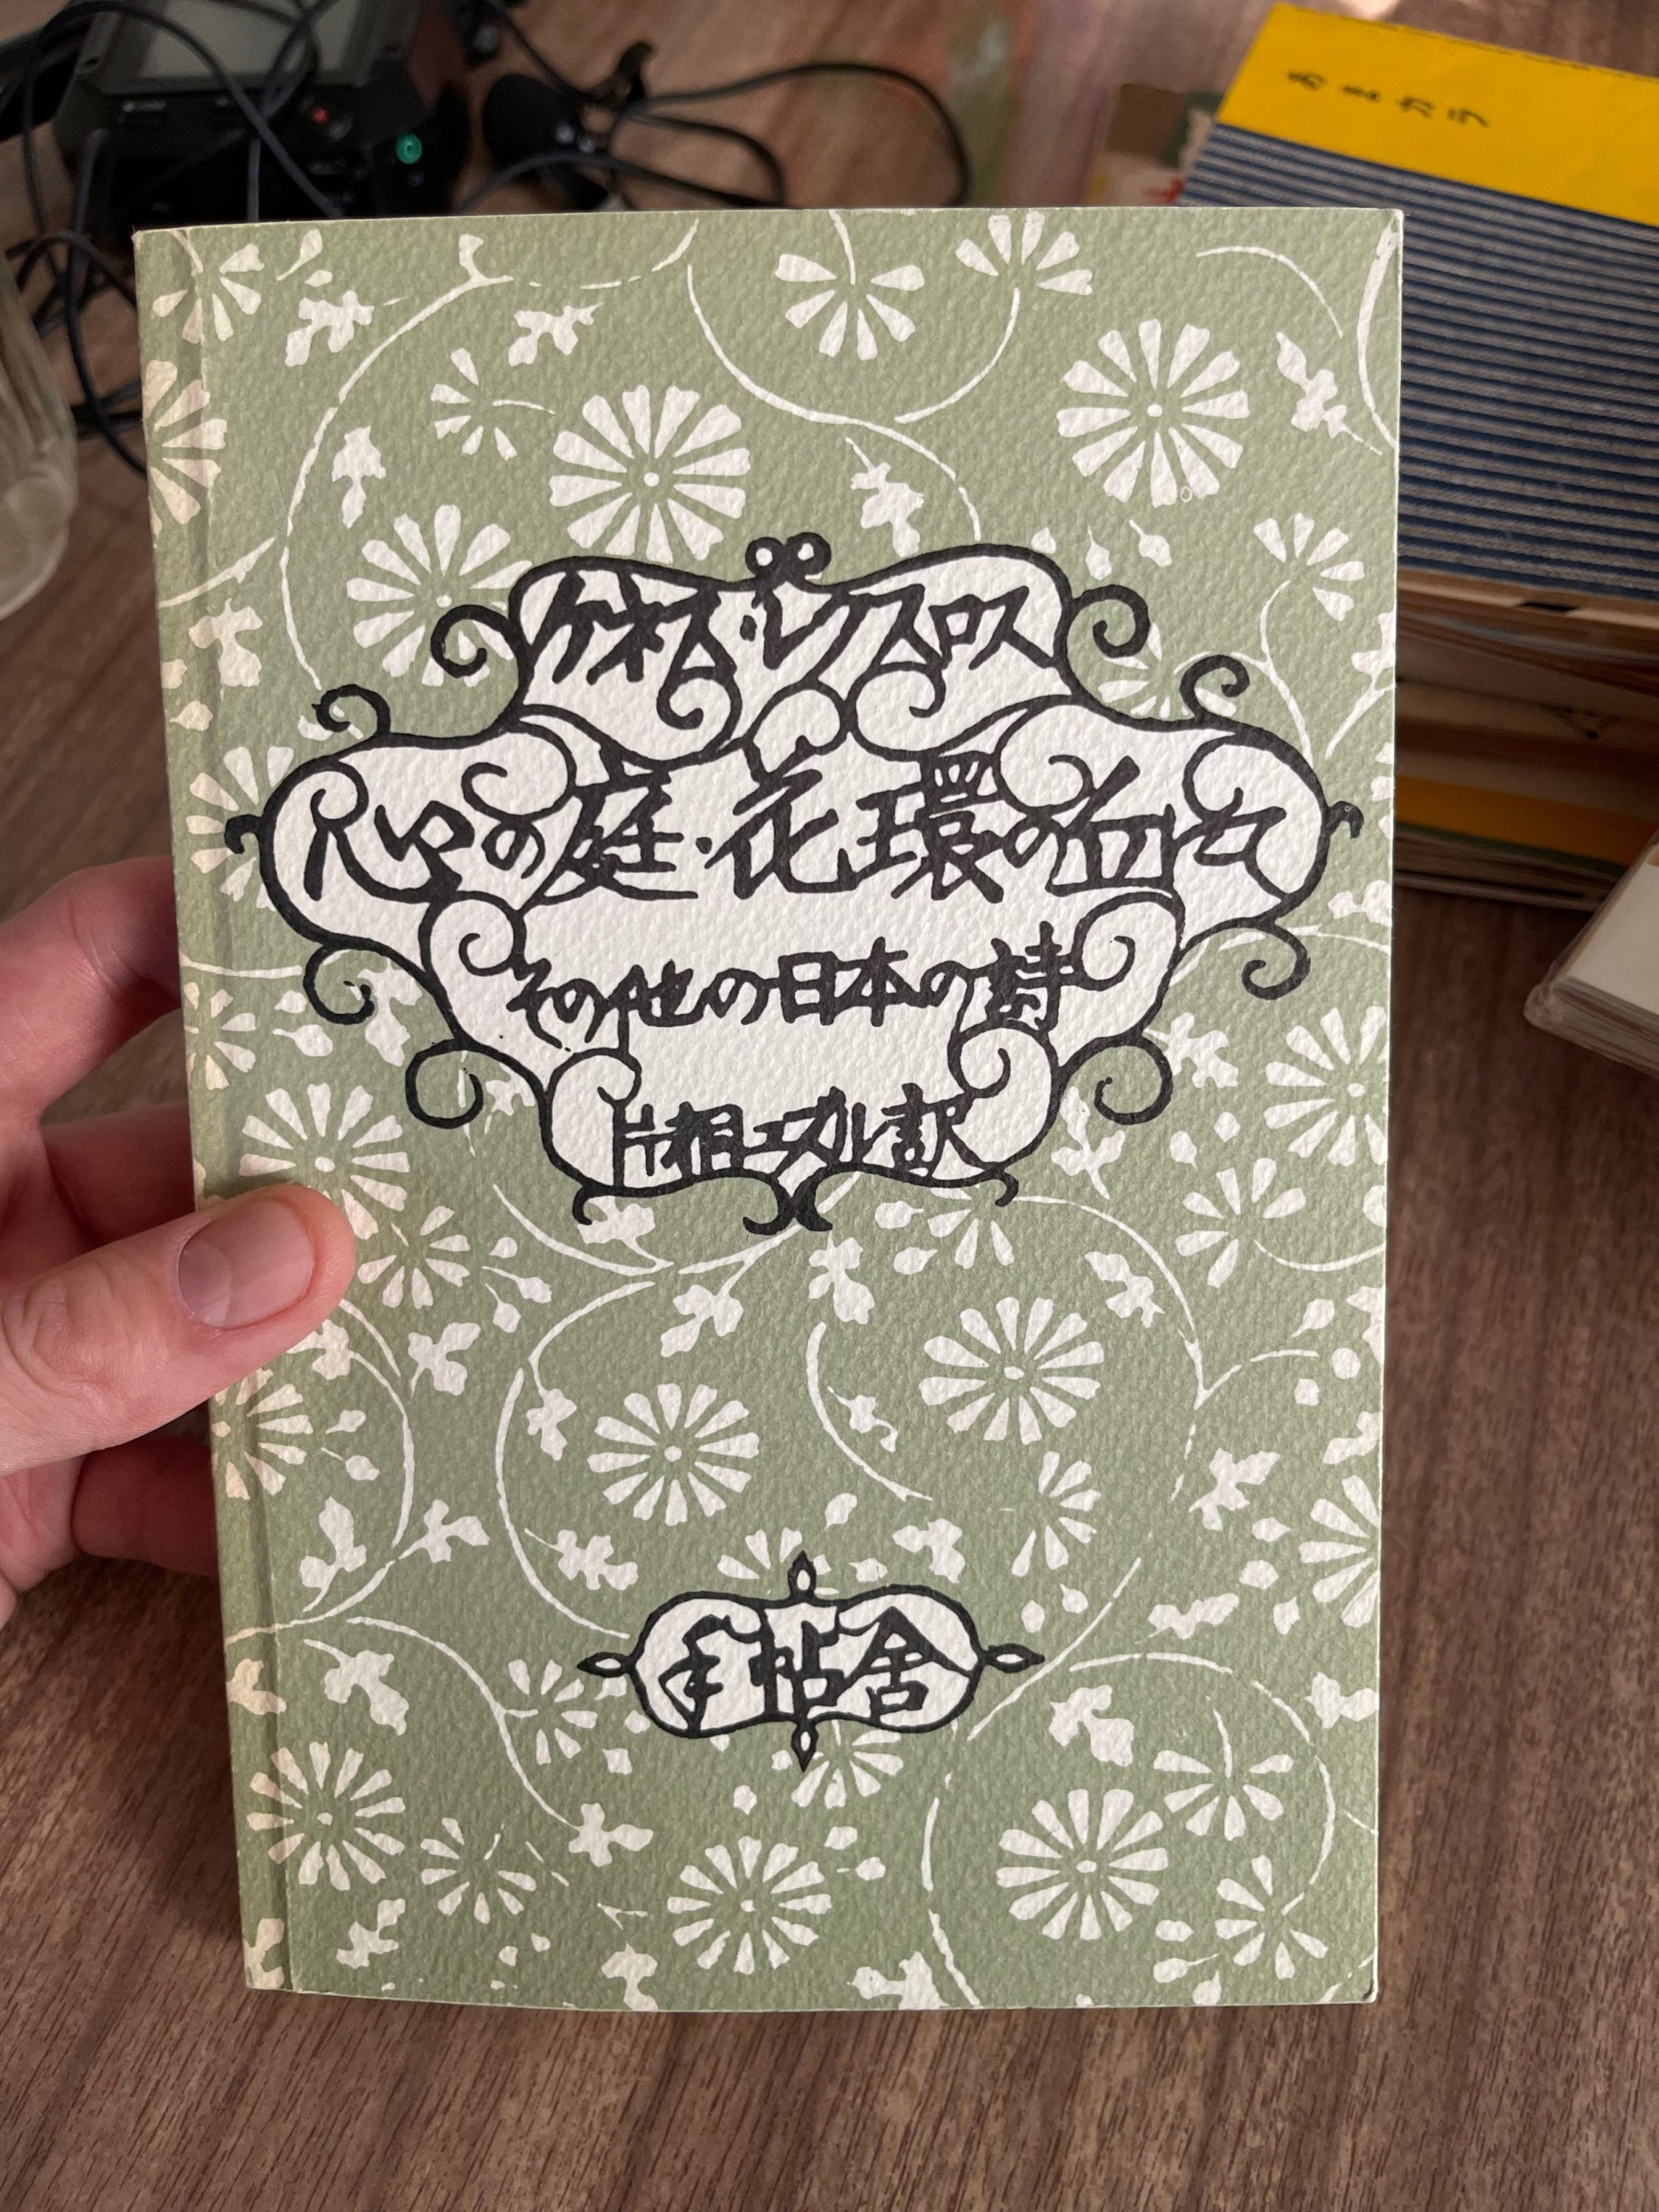 あまカラ
ケネス・レクスロス
心の庭・花環の丘にて
その他の日本の詩
片桐ユズル訳
手帖舎